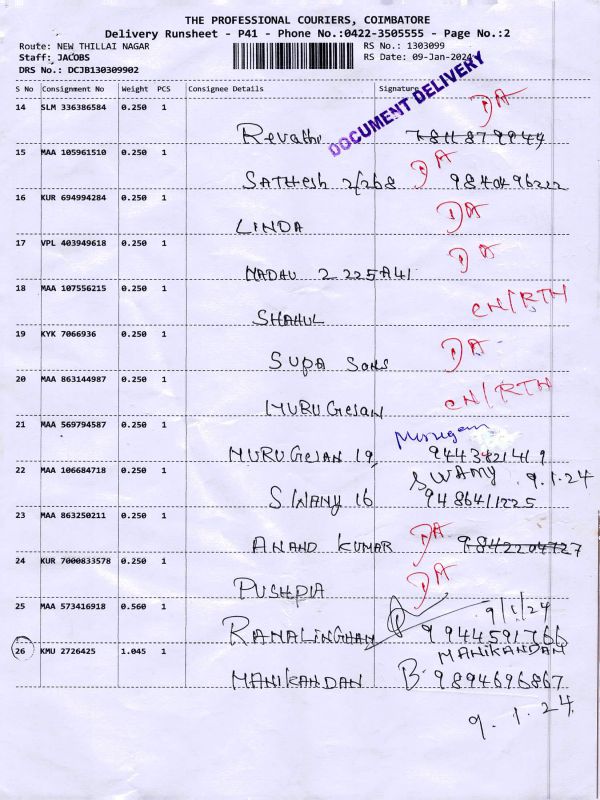 THE PROFESSIONAL COURIERS, COIMBATORE
Delivery Runsheet - P41 - Phone No.:0422-3505555 - Page No.:2
Route: NEW THILLAI NAGAR RS No.: 1303099
Staff: JACOBS RS Date: 09-Jan-2024
DRS No.: DCJB130309902
DOCUMENT DELIVERY
S No Consignment No Weight PCS Consignee Details Signature
14 SLM 336386584 0.250 1
DA
Revathi 7811879944
15 MAA 105961510 0.250 1
DA
SATHesh 2/268 9840496222
16 KUR 694994284 0.250 1
DA
LINDA
17 VPL 403949618 0.250 1
DA
MADHU 2 225A41
18 MAA 107556215 0.250 1
CN/RTN
SHAHUL
19 KYK 7066936 0.250 1
DA
SUPA SONS
20 MAA 863144987 0.250 1
CN/RTN
MURUGesan
21 MAA 569794587 0.250 1
Murugan
MURUGesan 19, 9443821419
22 MAA 106684718 0.250 1
SWAMY 9.1.24
SWAMY 16 9486411225
23 MAA 863250211 0.250 1
DA
ANAND KUMAR 9842204727
24 KUR 7000833578 0.250 1
DA
PUSHPA
25 MAA 573416918 0.560 1
9/1/24
RAMALINGHAM 9944591766
26 KMU 2726425 1.045 1
MANIKANDAN
MANIKANDAN B. 9894696867
9.1.24